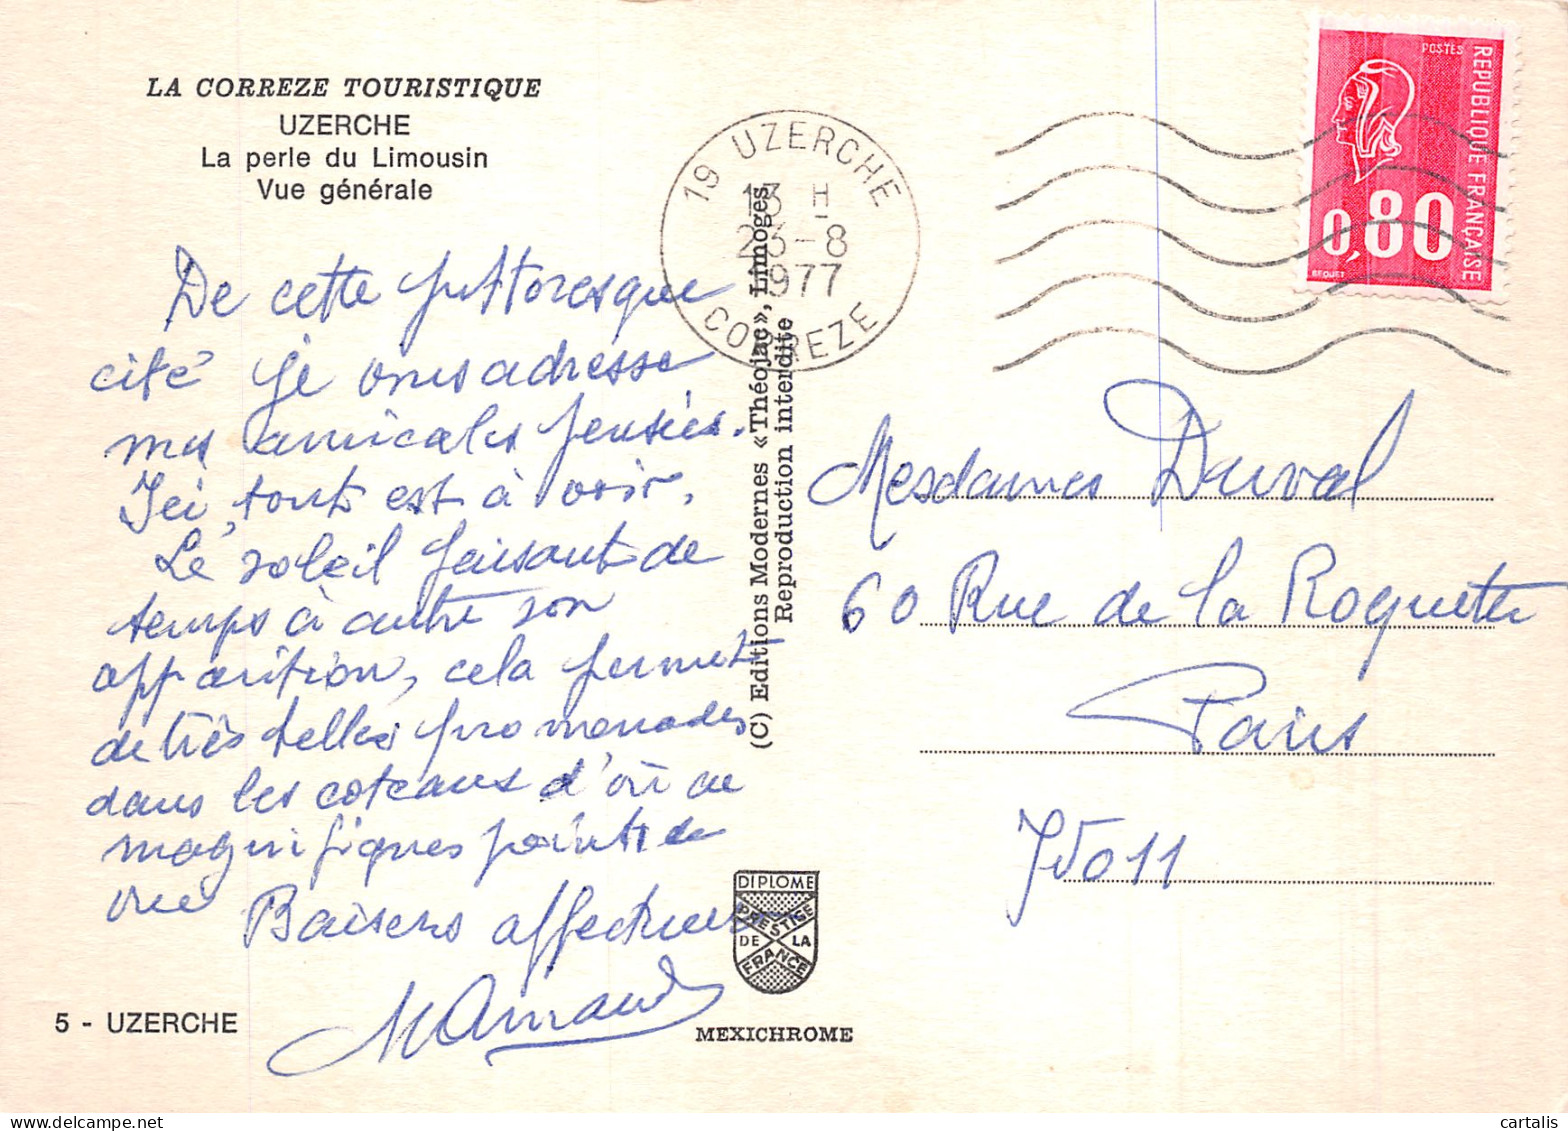 LA CORREZE TOURISTIQUE
UZERCHE
La perle du Limousin
Vue générale
De cette pittoresque
cité je vous adresse
mes amicales pensées.
Ici, tout est à voir.
Le soleil faisant de
temps à autre son
apparition, cela permet
de très belles promenades
dans les coteaux d'où de
magnifiques points de
vue
Baisers affectueux
MArnaud
5 - UZERCHE
19 UZERCHE
13 H
23-8
1977
CORREZE
(C) Editions Modernes «Théojac», Limoges
Reproduction interdite
DIPLOME
PRESTIGE
DE LA
FRANCE
MEXICHROME
POSTES
REPUBLIQUE FRANÇAISE
0,80
BEQUET
Mesdames Duval
60 Rue de la Roquette
Paris
75011
cartalis